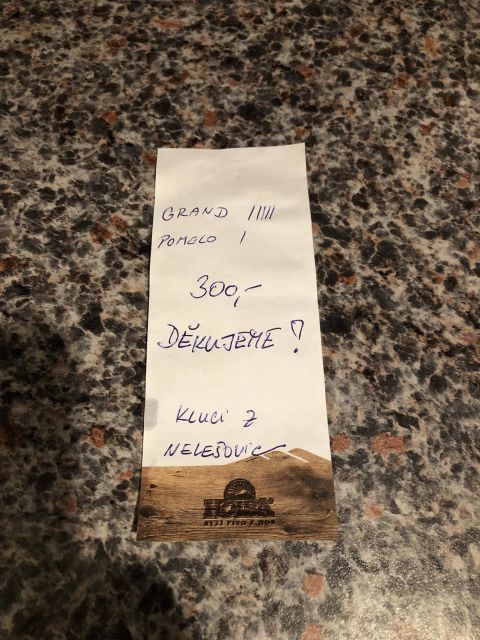 GRAND |||||
POMELO |
300,-
DĚKUJEME!
KLUCI Z
NELEŠOVIC
HOLBA
RYZÍ PIVO Z HOR